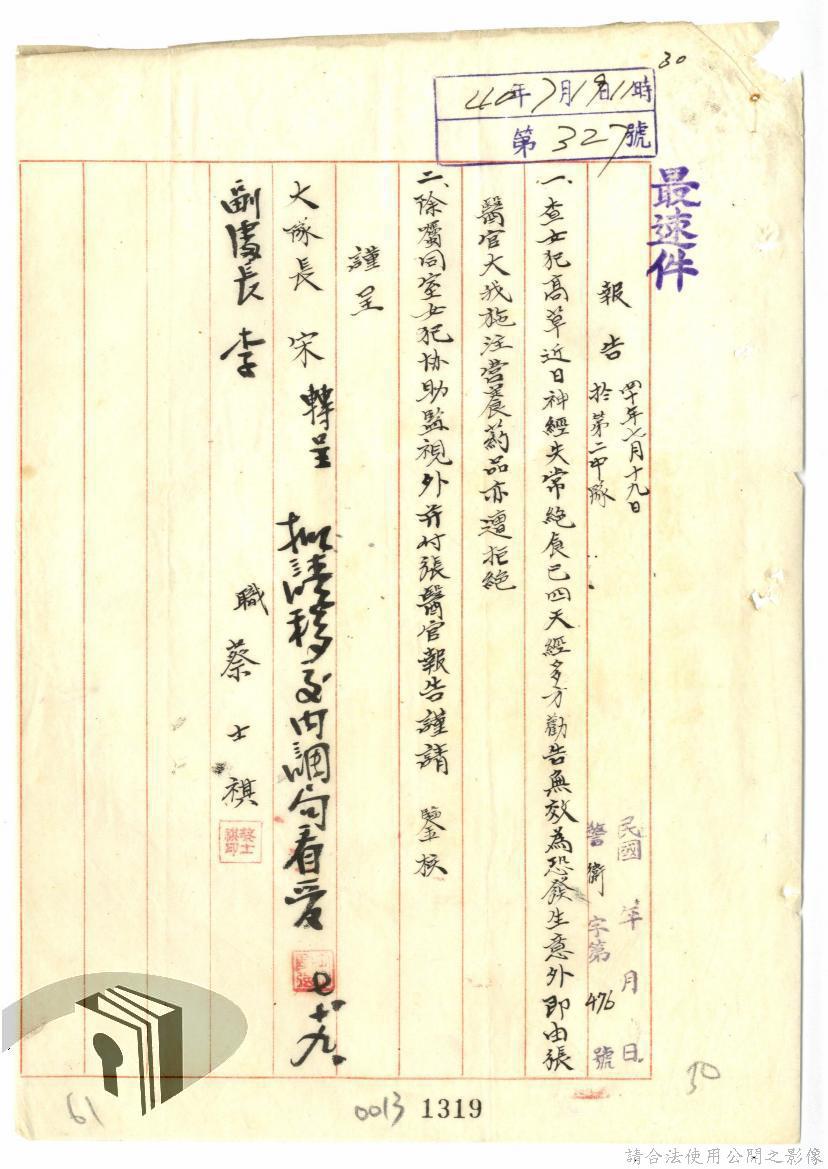 30
40年7月19日11時
第327號
最速件
報告 四十年七月十九日
於第二中隊
民國 年 月 日
警衛字第476號
一、查女犯高草近日神經失常絕食已四天經多方勸告無效為恐發生意外即由張
醫官大我施注營養葯品亦遭拒絕
二、除囑同室女犯協助監視外并付張醫官報告謹請 鑒核
謹呈
大隊長 宋 轉呈
副處長 李
職 蔡士祺
蔡士祺印
七十九
50
61
0013 1319
請合法使用公開之影像